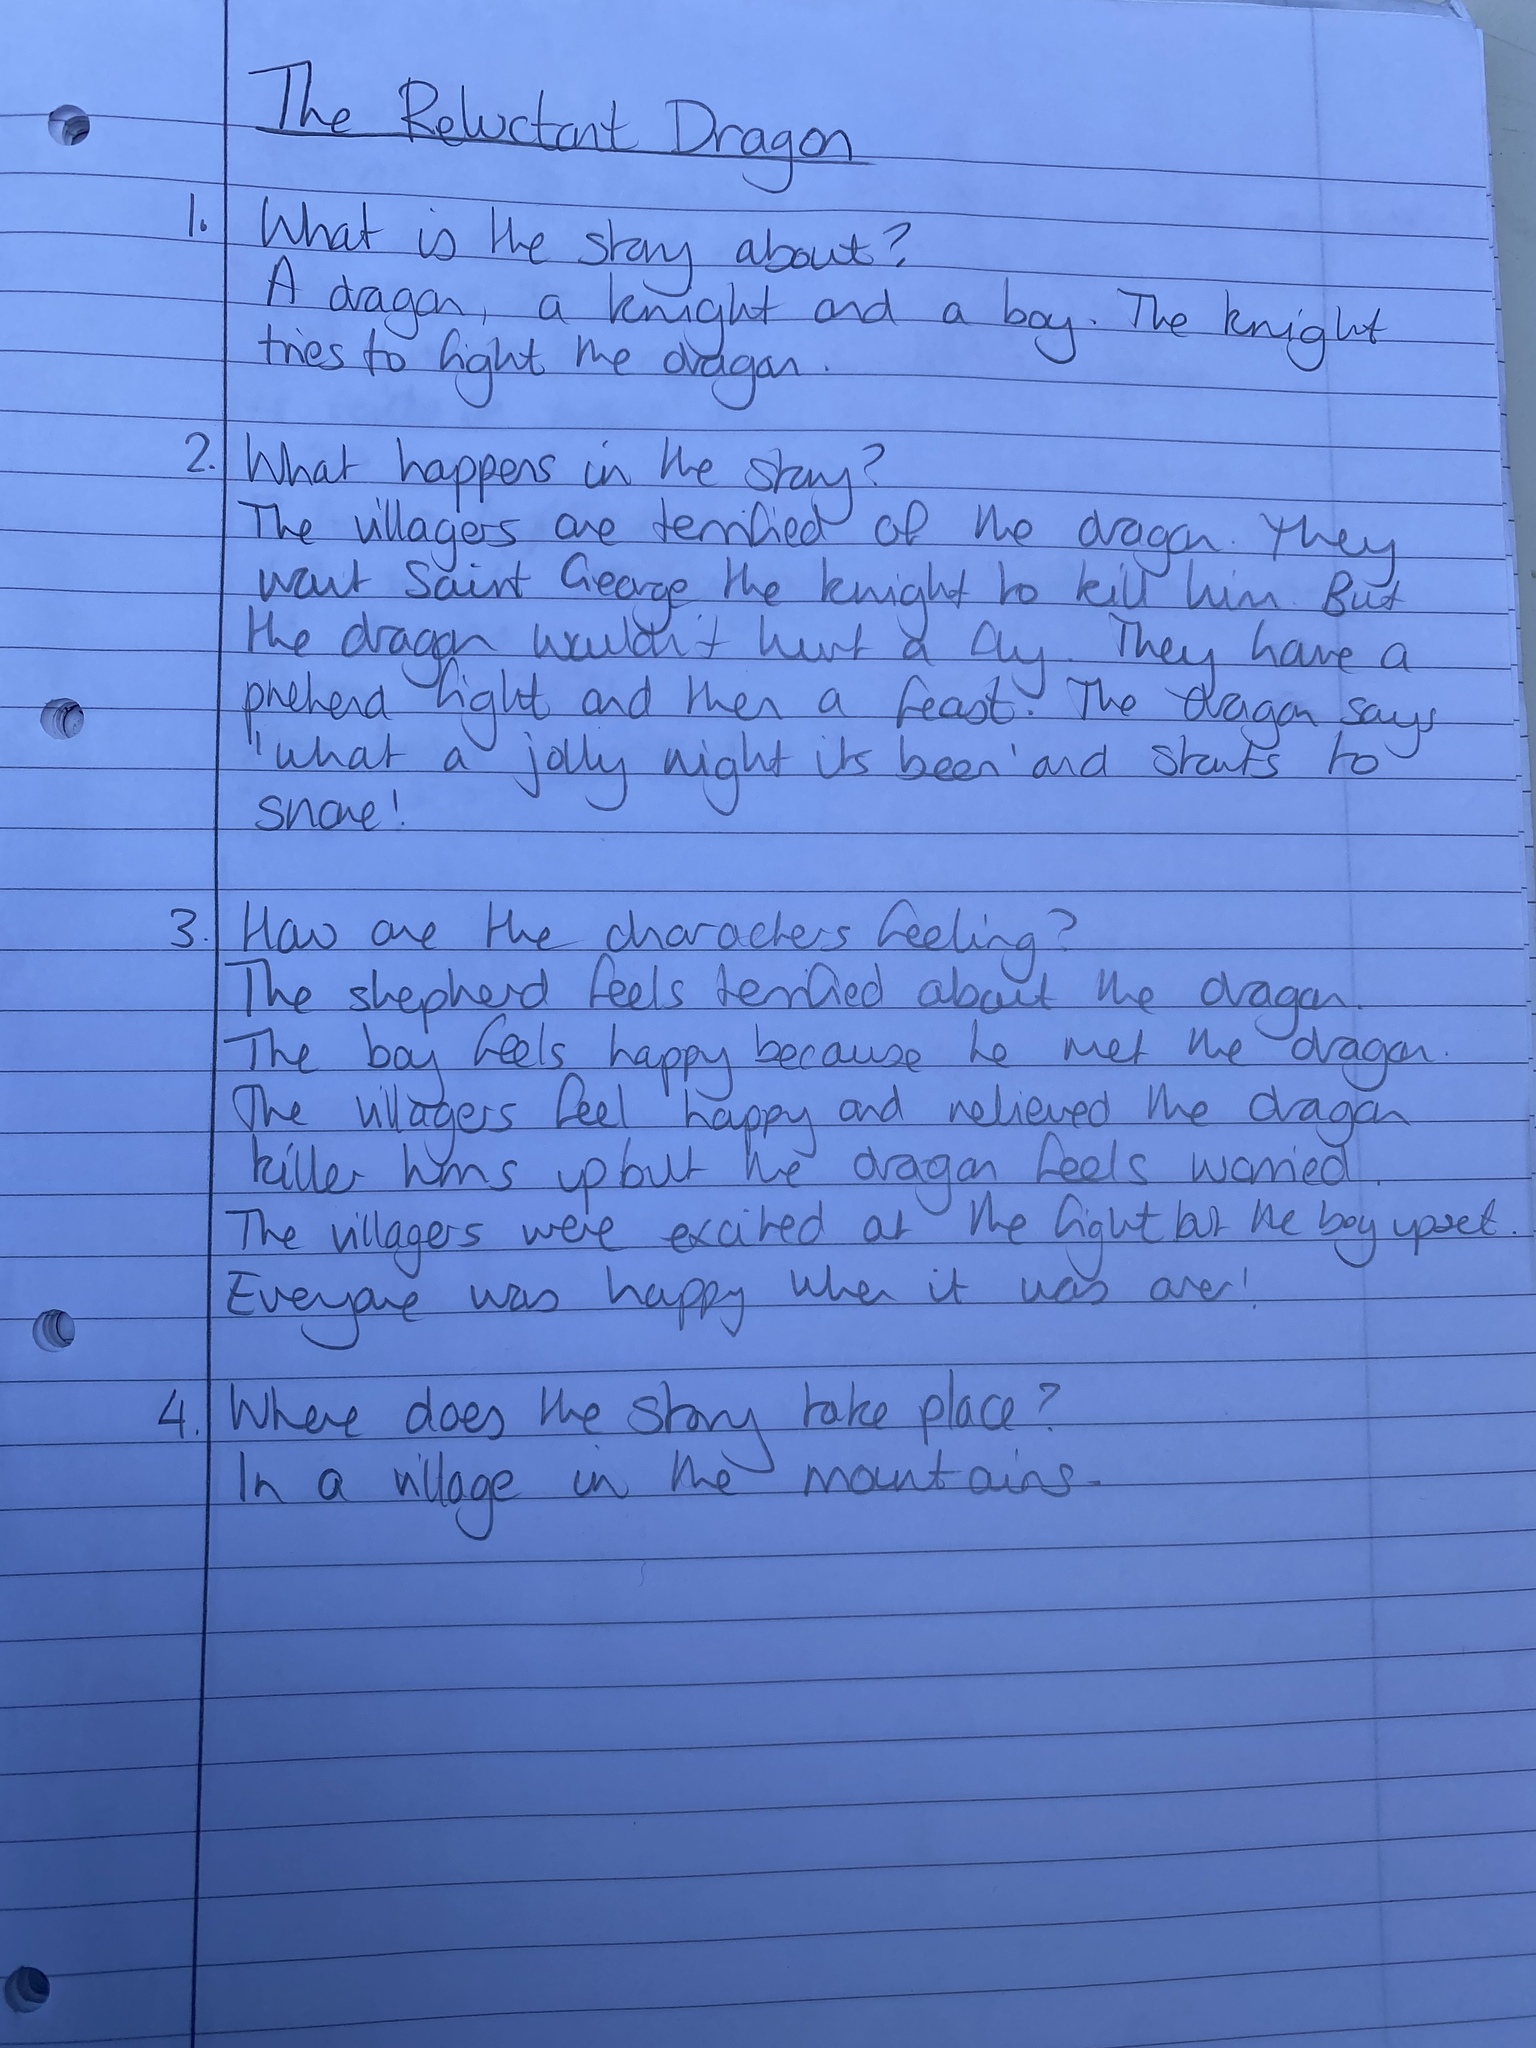 The Reluctant Dragon
1. What is the story about?
A dragon, a knight and a boy. The knight
tries to fight the dragon.
2. What happens in the story?
The villagers are terrified of the dragon. They
want Saint George the knight to kill him. But
the dragon wouldn't hurt a fly. They have a
pretend fight and then a feast. The dragon says
'what a jolly night its been' and starts to
snore!
3. How are the characters feeling?
The shepherd feels terrified about the dragon.
The boy feels happy because he met the dragon.
The villagers feel happy and relieved the dragon
killer turns up but the dragon feels worried.
The villagers were excited at the fight but the boy upset.
Everyone was happy when it was over!
4. Where does the story take place?
In a village in the mountains.